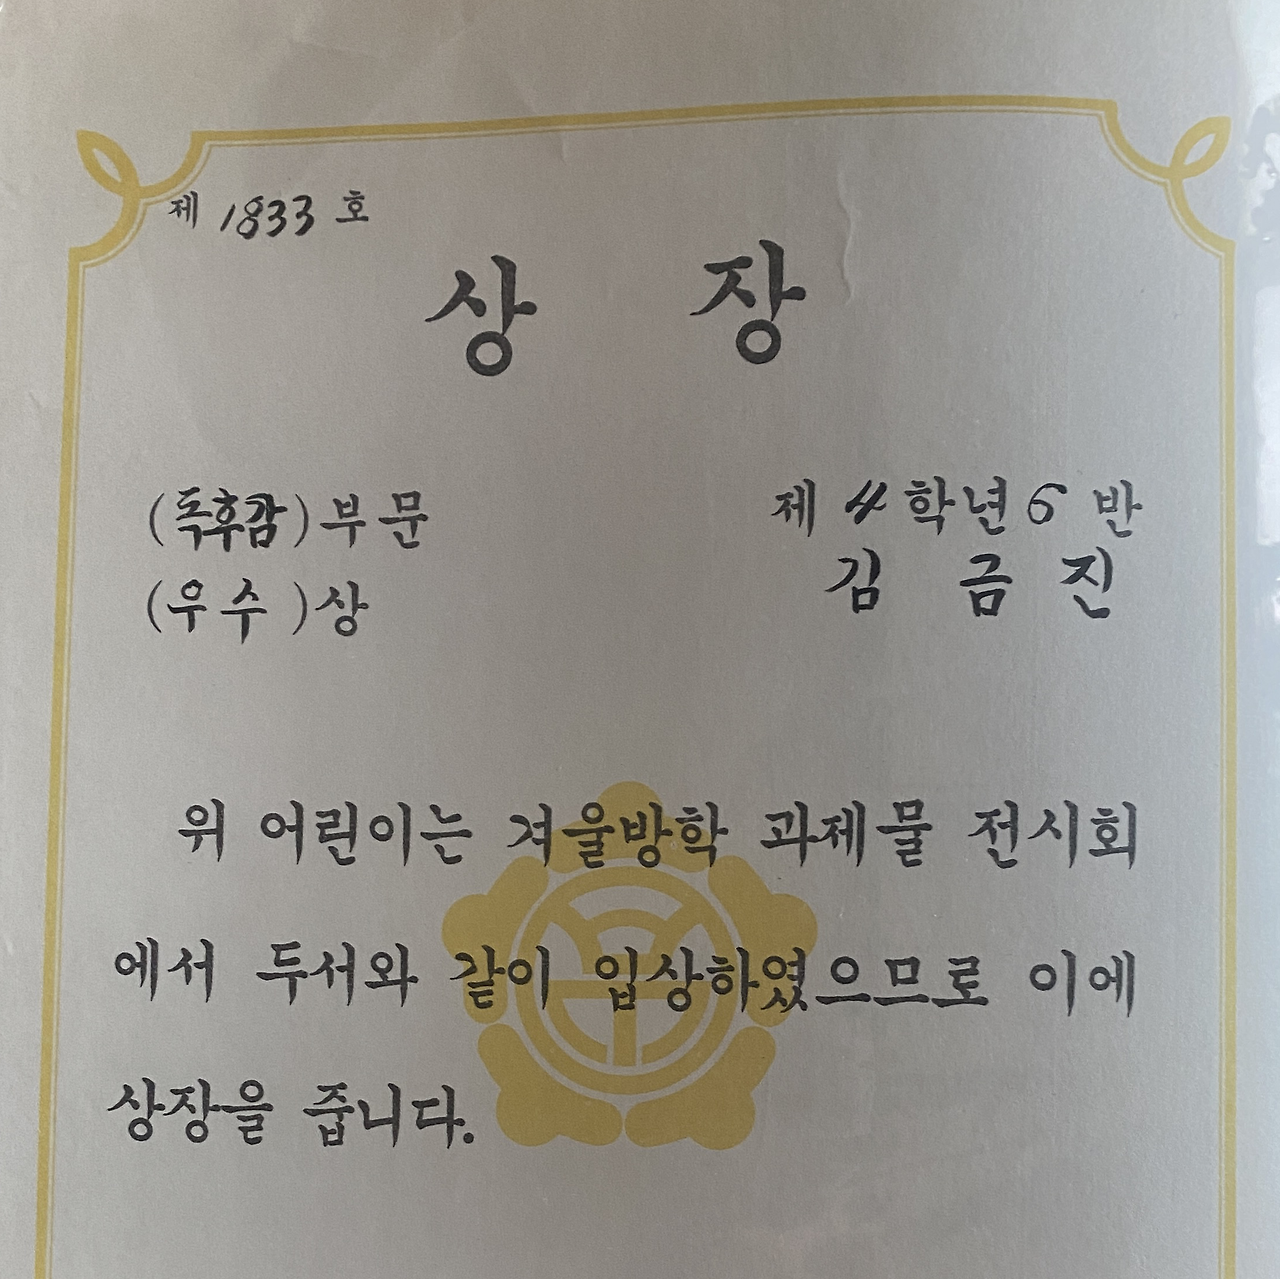 제 1833 호
상 장
(독후감) 부문
(우수) 상
제 4 학년 6 반
김 금 진
위 어린이는 겨울방학 과제물 전시회
에서 두서와 같이 입상하였으므로 이에
상장을 줍니다.